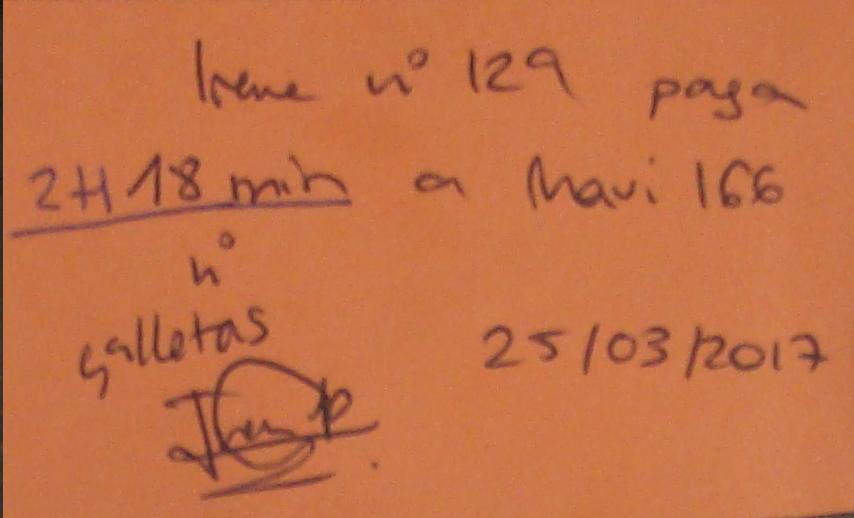 Irene nº 129 paga
2H 18 min a Mavi 166
nº
galletas
25/03/2017